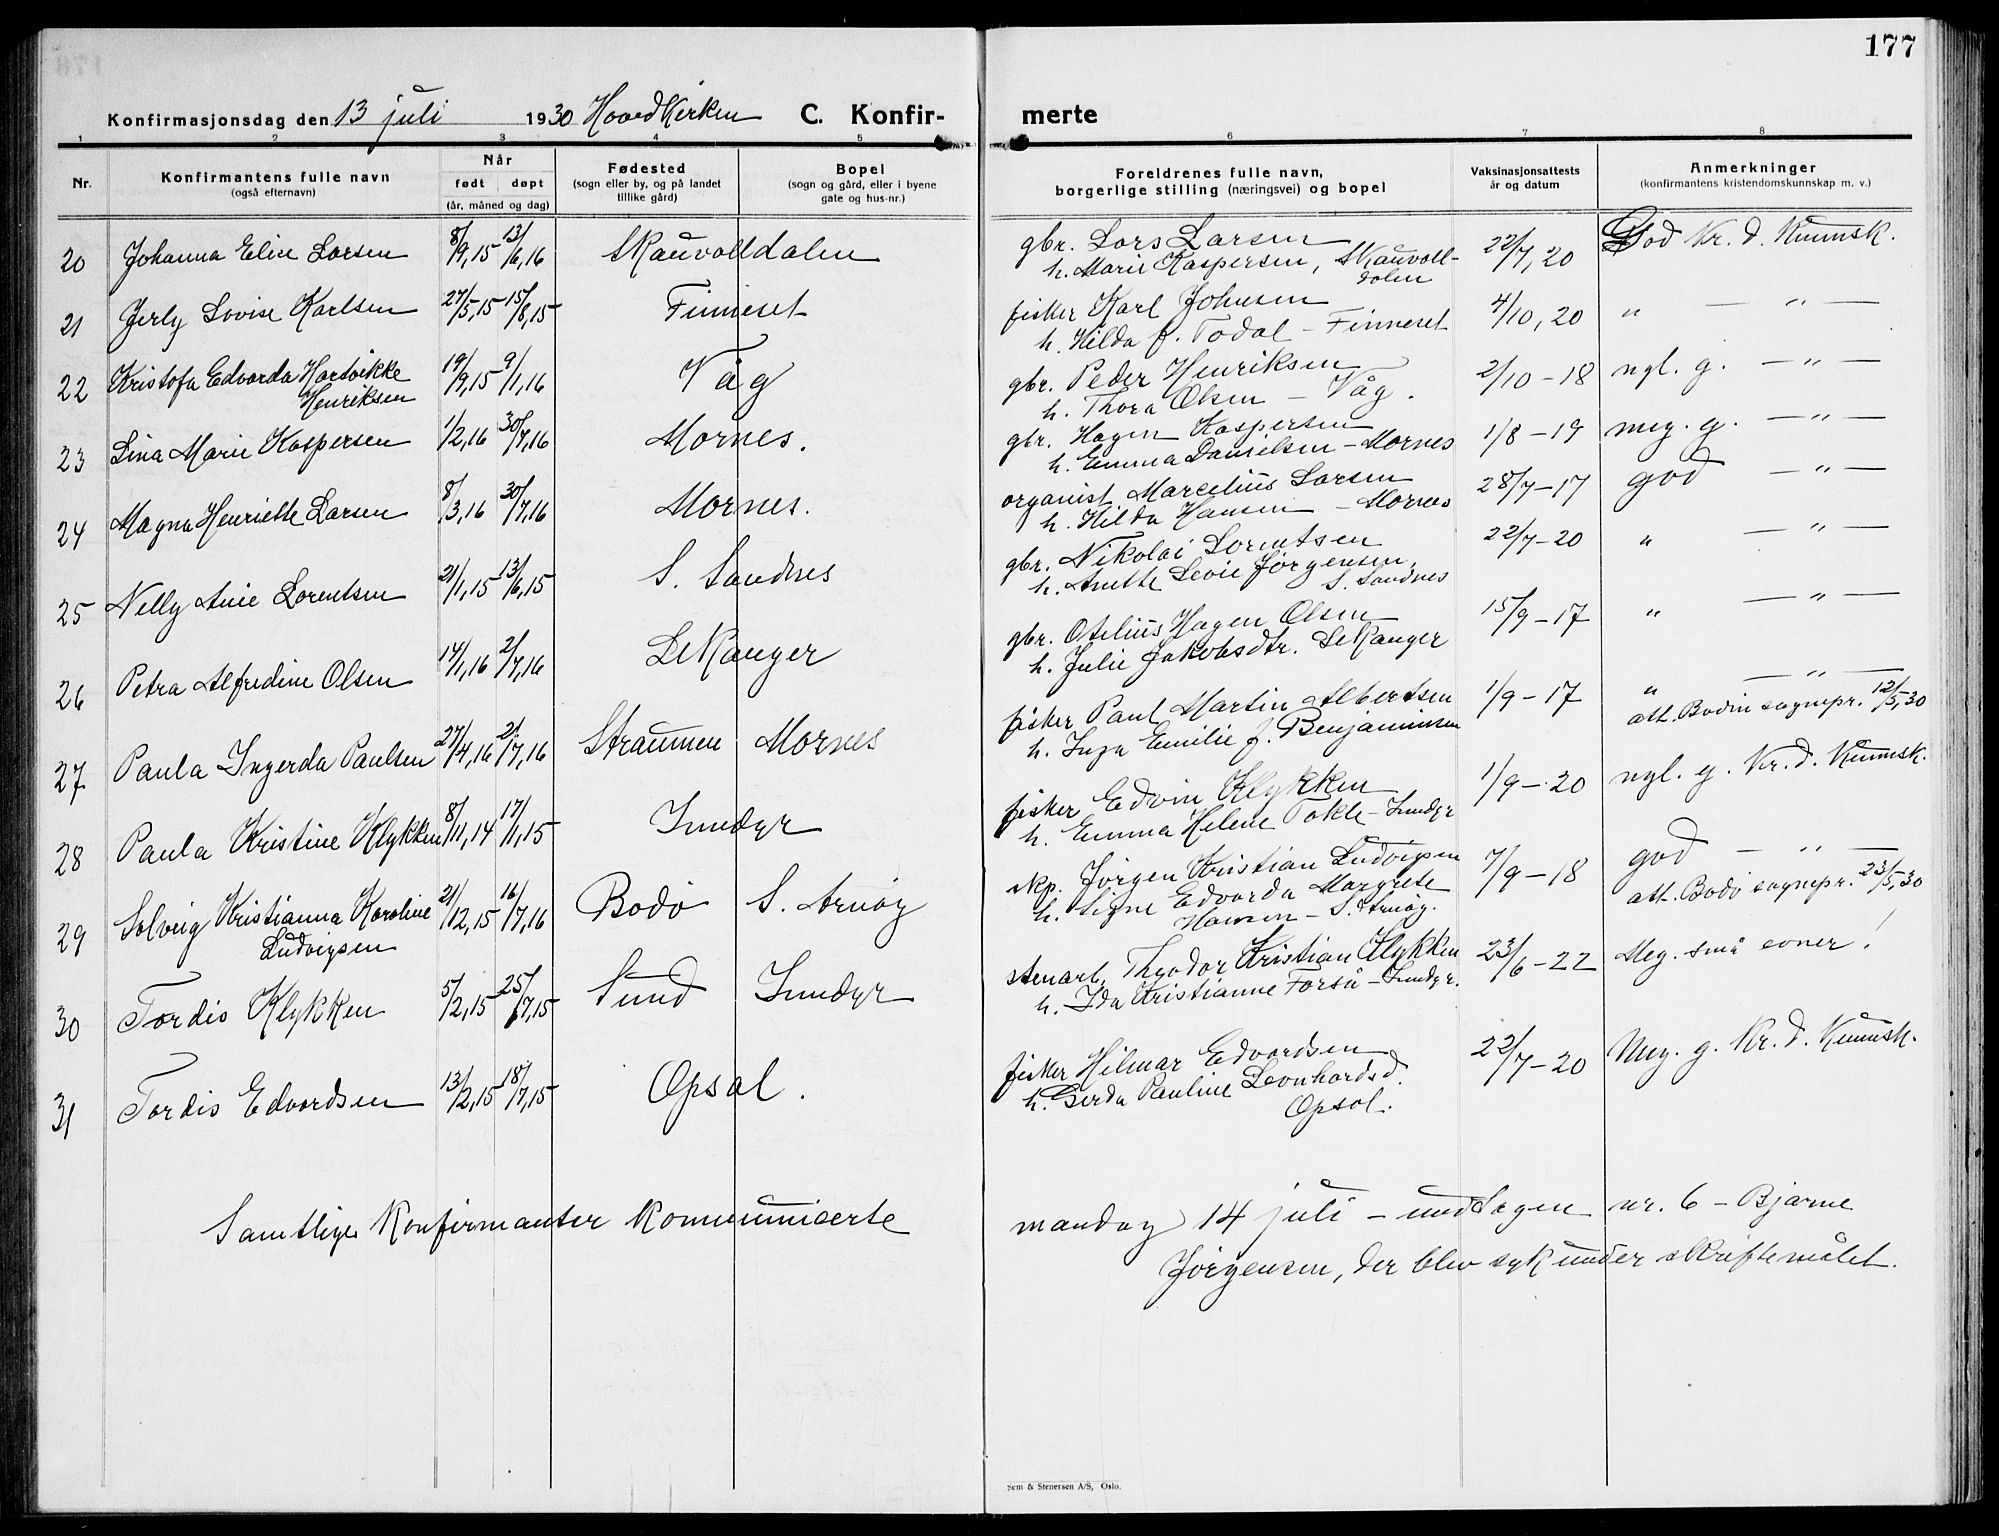 177
Konfirmasjonsdag den 13 juli 1930 Hovedkirken C. Konfir- merte
1 2 3 4 5 6 7 8
Nr.
Konfirmantens fulle navn
(også efternavn)
Når
født døpt
(år, måned og dag)
Fødested
(sogn eller by, og på landet
tillike gård)
Bopel
(sogn og gård, eller i byene
gate og hus-nr.)
Foreldrenes fulle navn,
borgerlige stilling (næringsvei) og bopel
Vaksinasjonsattests
år og datum
Anmerkninger
(konfirmantens kristendomskunnskap m. v.)
20 Johanna Elise Larsen 8/9,15 13/6,16 Skauvolldalen gbr. Lars Larsen 22/7,20 God Kr. d. Kunnsk.
h. Marie Kaspersen, Skauvoll-
dalen
21 Jerly Lovise Karlsen 27/5,15 15/8,15 Finneset fisker Karl Johnsen 4/10,20 " — " —
h. Hilda f. Todal - Finneset
22 Kristofa Edvarda Hartvikke 19/9,15 9/1,16 Våg gbr. Peder Henriksen 2/10-18 ngl. g. — " —
Henriksen h. Thora Olsen - Våg.
23 Lina Marie Kaspersen 1/2,16 30/7,16 Mornes. gbr. Hagen Kaspersen 1/8-19 meg. g. — " —
h. Emma Danielsen - Mornes
24 Magna Henriette Larsen 8/3,16 30/7,16 Mornes. organist Marcelius Larsen 28/7-17 god — " —
h. Hilda Hansen - Mornes
25 Nelly Anie Lorentsen 21/1,15 13/6,15 S. Sandnes gbr. Nikolai Lorentsen 22/7-20 " — " —
h. Anette Levie Jørgensen,
S. Sandnes
26 Petra Alfredine Olsen 14/1,16 2/7,16 Lekanger gbr. Otelius Hagen Olsen 15/9-17 " — " —
h. Julie Jakobsdtr. Lekanger
27 Paula Ingerda Paulsen 27/4,16 2/7,16 Straumen Mornes fisker Paul Martin Albertsen 1/9-17 " — " —
h. Inga Emilie f. Benjaminsen att. Bodin sognepr. 12/5,30
28 Paula Kristine Klykken 8/11,14 17/1,15 Inndyr fisker Edvin Klykken 1/9-20 ngl. g. Kr. d. Kunnsk.
h. Emma Helene Tokle - Inndyr
29 Solveig Kristianna Karoline 21/12,15 16/7,16 Bodø S. Arnøy skp. Jørgen Kristian Ludvigsen 7/9-18 god — " —
Ludvigsen h. Signe Edvarda Margrete att. Bodø sognepr. 23/5,30
Hansen - S. Arnøy.
30 Tordis Klykken 5/2,15 25/7,15 Sund Inndyr stenarb. Theodor Kristian Klykken 23/6-22 Meg. små evner!
h. Ida Kristianne Forså - Inndyr.
31 Tordis Edvardsen 13/2,15 18/7,15 Opsal. fisker Hilmar Edvardsen 22/7-20 Meg. g. Kr. d. Kunnsk.
h. Gerda Pauline Leonhardsd.
Opsal.
Samtlige Konfirmanter kommunicerte mandag 14 juli - undtagen nr. 6 - Bjarne
Jørgensen, der blev syk under skriftemålet.
Sem & Stenersen A/S, Oslo.